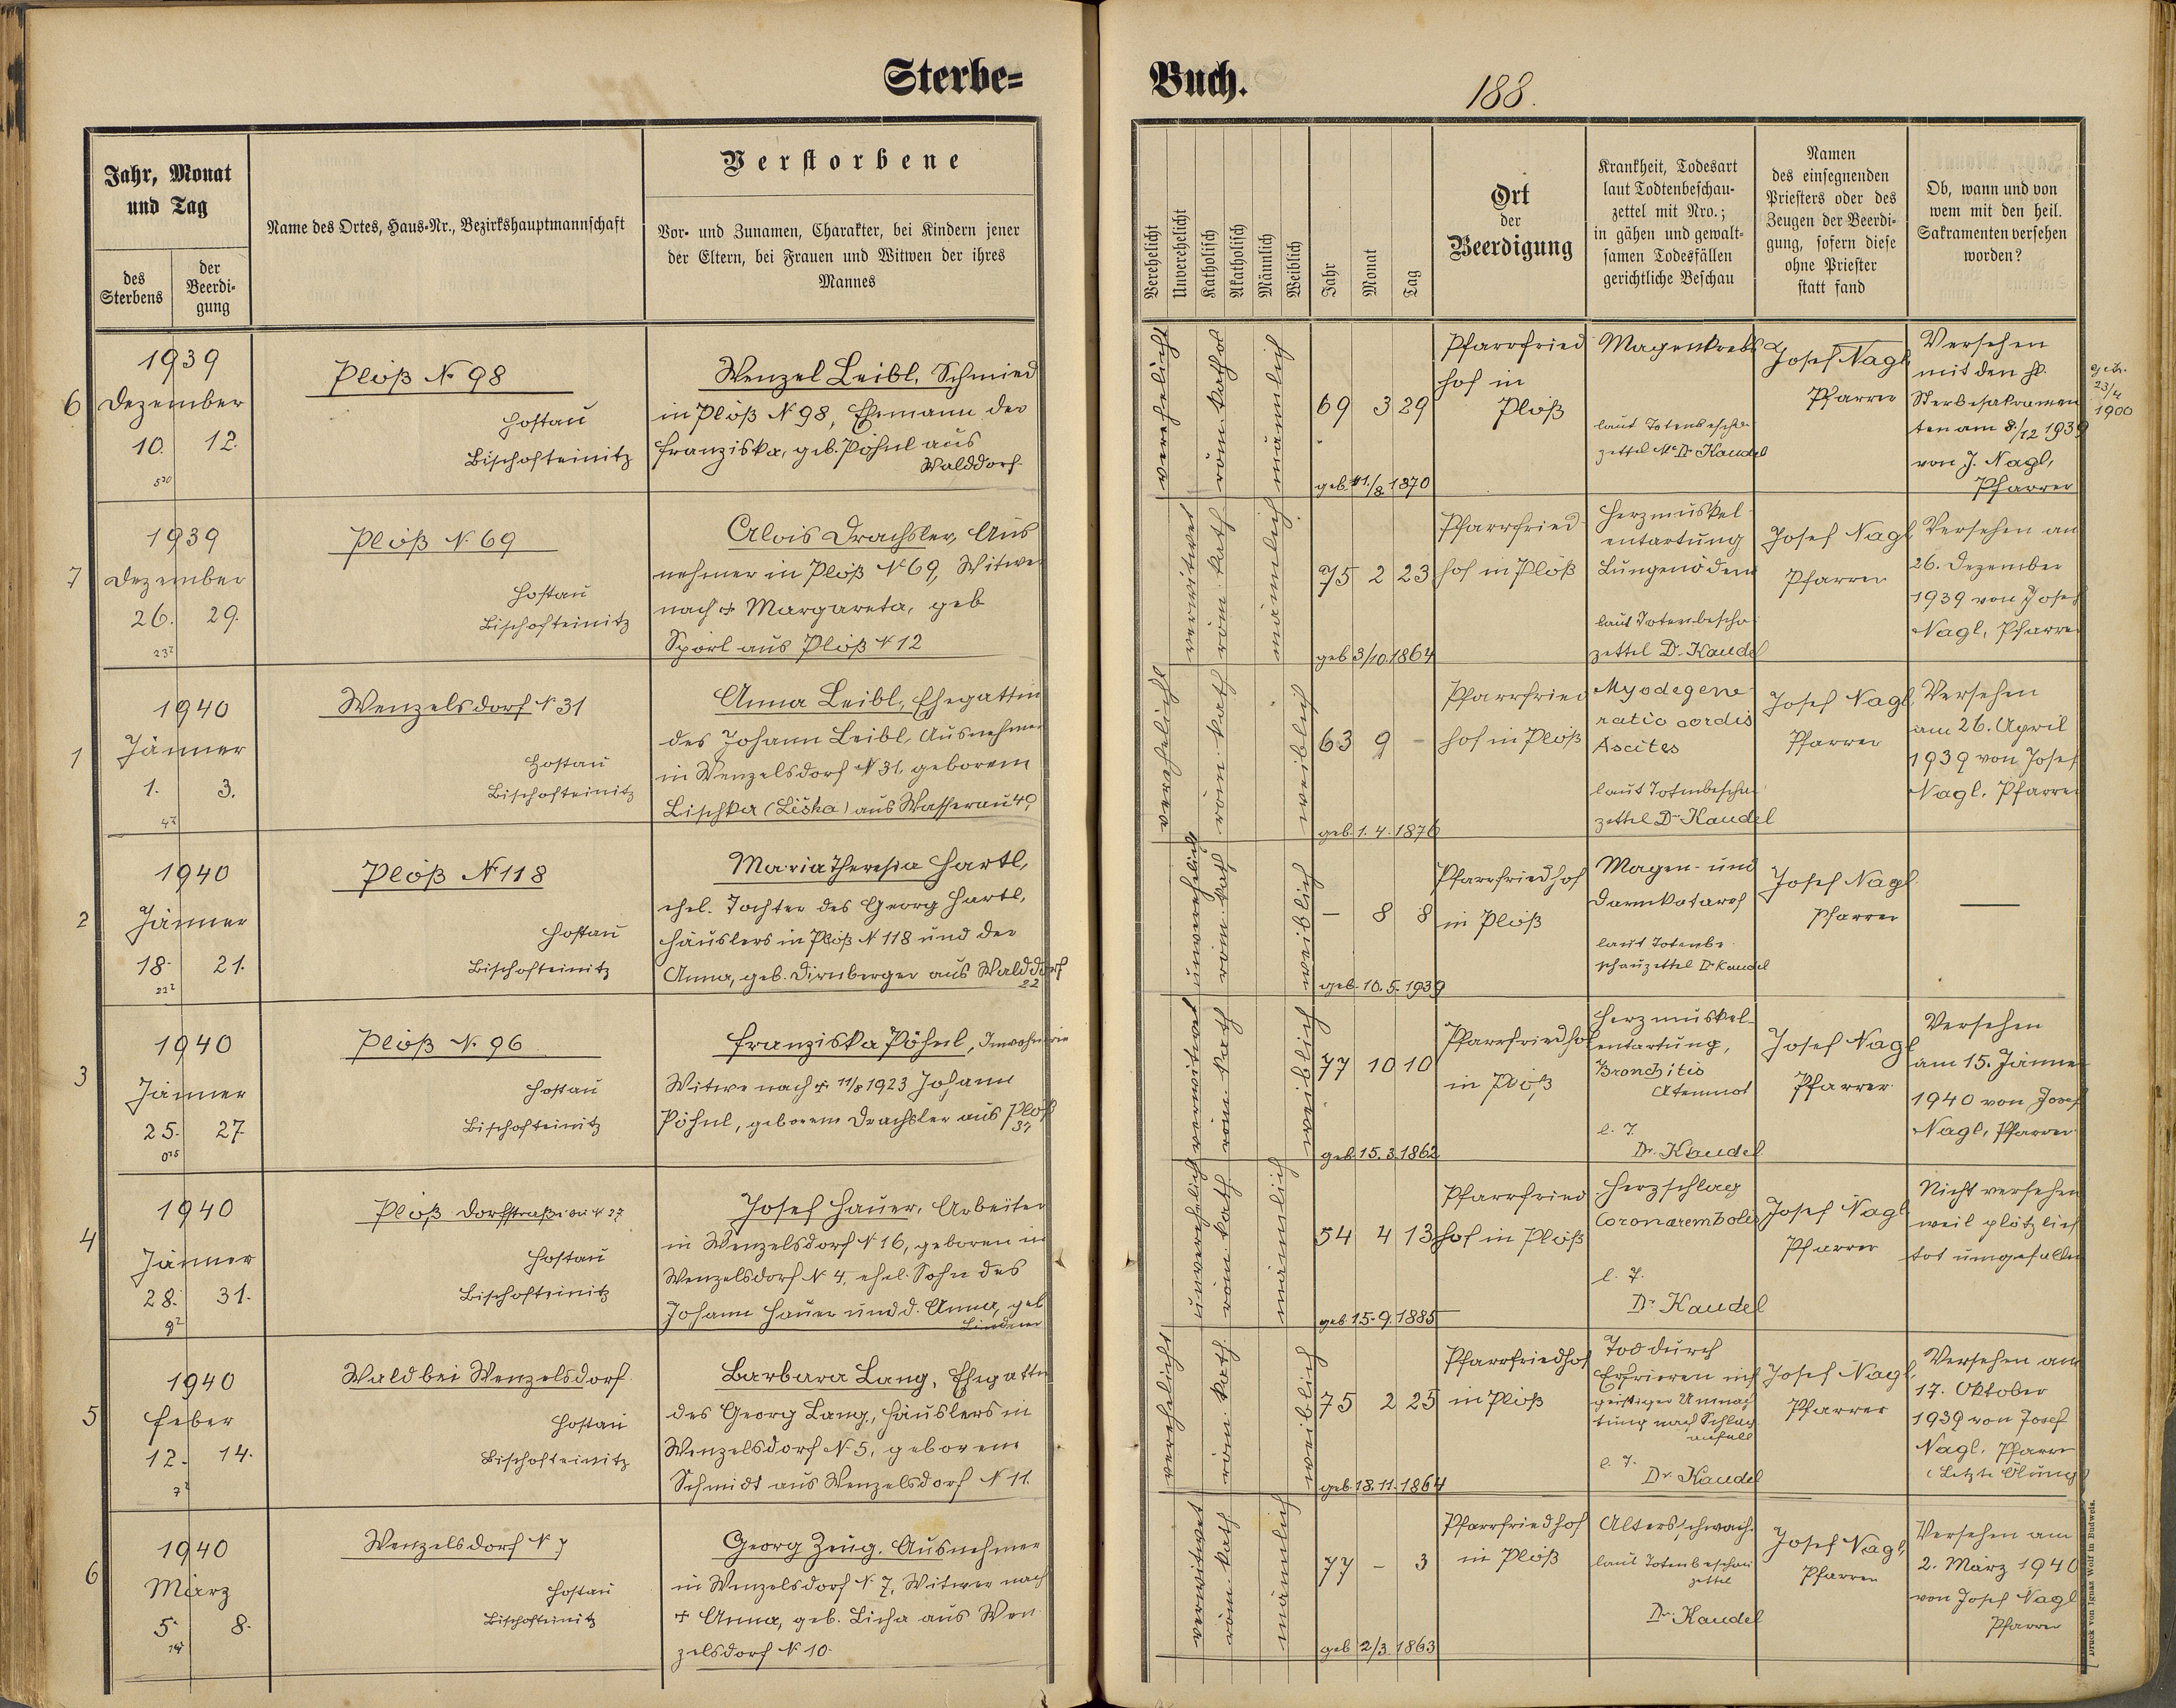 Sterbe=
Buch.
188.
Jahr, Monat
und Tag
des
Sterbens
der
Beerdi-
gung
Name des Ortes, Haus-Nr., Bezirkshauptmannschaft
Verstorbene
Vor- und Zunamen, Charakter, bei Kindern jener
der Eltern, bei Frauen und Witwen der ihres
Mannes
Verehelicht
Unverehelicht
Katholisch
Akatholisch
Männlich
Weiblich
Jahr
Monat
Tag
Ort
der
Beerdigung
Krankheit, Todesart
laut Todtenbeschau-
zettel mit Nro.;
in gähen und gewalt-
samen Todesfällen
gerichtliche Beschau
Namen
des einsegnenden
Priesters oder des
Zeugen der Beerdi-
gung, sofern diese
ohne Priester
statt fand
Ob, wann und von
wem mit den heil.
Sakramenten versehen
worden?
6
1939
Dezember
10. 12.
Plöß N. 98
Hostau
Bischofteinitz
Wenzel Leibl, Schmied
in Plöß N. 98, Ehemann der
Franziska, geb. Pöhnl aus
Walddorf.
verehelicht
röm. kathol
männlich
69 3 29
geb. 11./8. 1870
Pfarrfried
hof in
Plöß
Magenkrebs
laut Totenbeschau
zettel Dr. Kaudel
Josef Nagl
Pfarrer
Versehen
mit den hl.
Sterbesakramen
ten am 8/12 1939
von J. Nagl,
Pfarrer
23/4
1900
7
1939
Dezember
26. 29.
Plöß N. 69
Hostau
Bischofteinitz
Alois Drachsler, Aus
nehmer in Plöß N. 69, Witwer
nach + Margareta, geb
Spörl aus Plöß N 12
verwitwet
röm. kath
männlich
75 2 23
geb 3/10. 1864
Pfarrfried
hof in Plöß
Herzmuskel
entartung
Lungenödem
laut Totenbescha
zettel Dr. Kaudel
Josef Nagl
Pfarrer
Versehen am
26. Dezember
1939 von Josef
Nagl, Pfarrer
1
1940
Jänner
1. 3.
Wenzelsdorf N 31
Hostau
Bischofteinitz
Anna Leibl, Ehegattin
des Johann Leibl, Ausnehmer
in Wenzelsdorf N. 31, geborene
Lischka (Liška) aus Wasserau 49
verehelicht
röm. kath
weiblich
63 9 -
geb. 1. 4. 1876
Pfarrfried
hof in Plöß
Myodegene
ratio cordis
Ascites
laut Totenbeschau
zettel Dr Kaudel
Josef Nagl,
Pfarrer
Versehen
am 26. April
1939 von Josef
Nagl. Pfarrer
2
1940
Jänner
18. 21.
Plöß N. 118
Hostau
Bischofteinitz
Maria Theresia Hartl,
ehel. Tochter des Georg Hartl,
Häuslers in Plöß N 118 und der
Anna, geb. Dirnberger aus Walddorf
22
unverehelicht
röm. kath
weiblich
- 8 8
geb. 10. 5. 1939
Pfarrfriedhof
in Plöß
Magen- und
Darmkatarrh
laut Totenbe
schauzettel Dr Kaudel
Josef Nagl
Pfarrer
—
3
1940
Jänner
25. 27.
Plöß N. 96
Hostau
Bischofteinitz
Franziska Pöhnl, Inwohnerin
Witwe nach + 11/8 1923 Johann
Pöhnl, geborene Drachsler aus Plöß
37
verwitwet
röm. kath
weiblich
77 10 10
geb. 15. 3. 1862
Pfarrfriedhof
in Plöß
Herzmuskel-
entartung,
Bronchitis
Atemnot
l. T.
Dr. Kaudel
Josef Nagl
Pfarrer
Versehen
am 15. Jänner
1940 von Josef
Nagl, Pfarrer
4
1940
Jänner
28. 31.
Plöß Dorfstraße bei N 27
Hostau
Bischofteinitz
Josef Hauer, Arbeiter
in Wenzelsdorf N. 16, geboren in
Wenzelsdorf N. 4, ehel. Sohn des
Johann Hauer und d. Anna, geb
Lindner
unverehelicht
röm. kath
männlich
54 4 13
geb. 15. 9. 1885
Pfarrfried
hof in Plöß
Herzschlag
Coronarembolie
l. T.
Dr. Kaudel
Josef Nagl
Pfarrer
Nicht versehen
weil plötzlich
tot umgefallen
5
1940
Feber
12. 14.
Wald bei Wenzelsdorf
Hostau
Bischofteinitz
Barbara Lang, Ehegattin
des Georg Lang, Häuslers in
Wenzelsdorf N. 5, geborene
Schmidt aus Wenzelsdorf N 11.
verehelicht
röm. kath.
weiblich
75 2 25
geb. 18. 11. 1864
Pfarrfriedhof
in Plöß
Tod durch
Erfrieren
geistiger Umnach
tung nach Schlag
anfall
l. T.
Dr. Kaudel
Josef Nagl,
Pfarrer
Versehen am
17. Oktober
1939 von Josef
Nagl. Pfarrer
(Letzte Ölung)
6
1940
März
5. 8.
Wenzelsdorf N. 7
Hostau
Bischofteinitz
Georg Zeug, Ausnehmer
in Wenzelsdorf N. 7, Witwer nach
+ Anna, geb. Licha aus Wen
zelsdorf N. 10.
verwitwet
röm. kath
männlich
77 - 3
geb 2/3. 1863
Pfarrfriedhof
in Plöß
Altersschwach.
laut Totenbeschau
zettel
Dr. Kaudel
Josef Nagl,
Pfarrer
Versehen am
2. März 1940
von Josef Nagl
Pfarrer
Druck von Ignaz Wolf in Budweis.